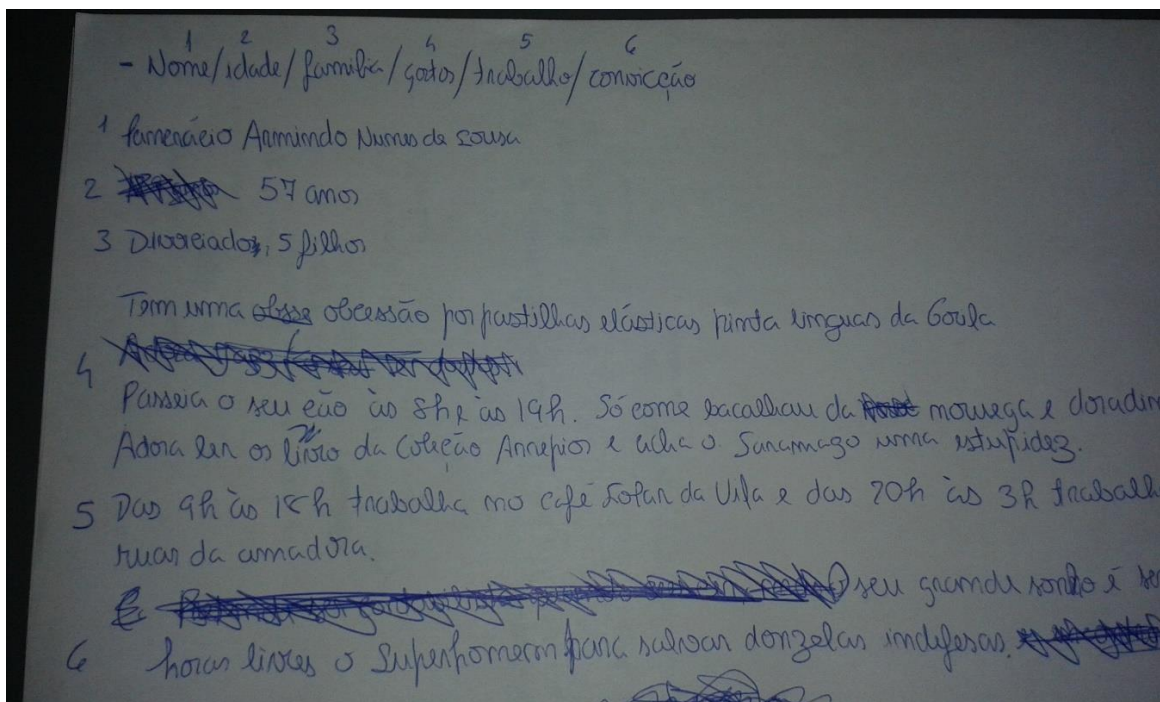 1 2 3 4 5 6
- Nome/idade/família/gostos/trabalho/convicção
1 Armindo Nunes de Sousa
2 57 anos
3 Divorciado, 5 filhos
Tem uma obcessão por pastilhas elásticas pinta línguas da Gorila
4
Passeia o seu cão às 8h e às 19h. Só come bacalhau da noruega e
Adora ler os livro da Coleção Arrepios e acha o Saramago uma estupidez.
5 Das 9h às 18h trabalha no café Solar da Vila e das 20h às 3h
ruas da amadora.
O seu grande sonho é
6 horas livres o Superhomem para salvar donzelas indefesas.